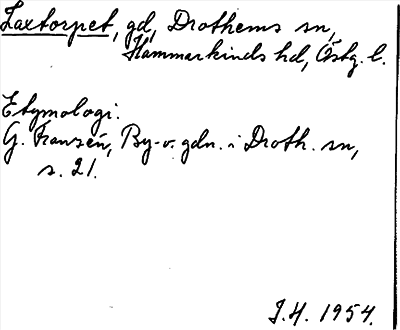 Laxtorpet, gd, Drothems sn,
Hammarkinds hd, Östg. l.
Etymologi.
G. Franzén, By- o. gdn. i Droth. sn,
s. 21.
J.H. 1954.